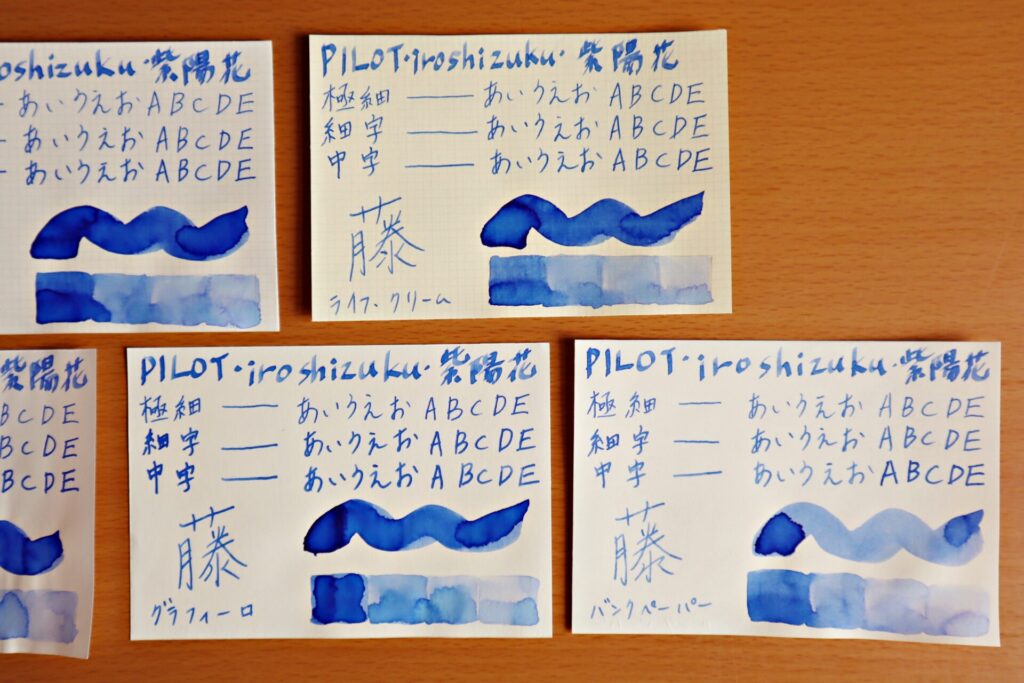 oshizuku・紫陽花
あいうえお ABCDE
あいうえお ABCDE
あいうえお ABCDE
PILOT・iroshizuku・紫陽花
極細 — あいうえお ABCDE
細字 — あいうえお ABCDE
中字 — あいうえお ABCDE
藤
ライフ・クリーム
紫陽花
BCDE
BCDE
BCDE
PILOT・iroshizuku・紫陽花
極細 — あいうえお ABCDE
細字 — あいうえお ABCDE
中字 — あいうえお ABCDE
藤
グラフィーロ
PILOT・iroshizuku・紫陽花
極細 — あいうえお ABCDE
細字 — あいうえお ABCDE
中字 — あいうえお ABCDE
藤
バンクペーパー